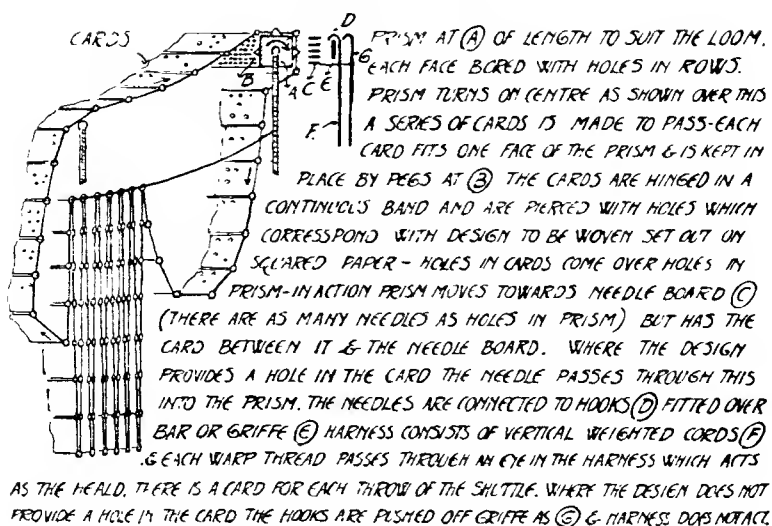 CARDS
D
B
A
C
E
G
F.
PRISM AT Ⓐ OF LENGTH TO SUIT THE LOOM.
EACH FACE BORED WITH HOLES IN ROWS.
PRISM TURNS ON CENTRE AS SHOWN OVER THIS
A SERIES OF CARDS IS MADE TO PASS-EACH
CARD FITS ONE FACE OF THE PRISM & IS KEPT IN
PLACE BY PEGS AT Ⓑ THE CARDS ARE HINGED IN A
CONTINUOUS BAND AND ARE PIERCED WITH HOLES WHICH
CORRESSPOND WITH DESIGN TO BE WOVEN SET OUT ON
SQUARED PAPER - HOLES IN CARDS COME OVER HOLES IN
PRISM-IN ACTION PRISM MOVES TOWARDS NEEDLE BOARD Ⓒ
(THERE ARE AS MANY NEEDLES AS HOLES IN PRISM) BUT HAS THE
CARD BETWEEN IT & THE NEEDLE BOARD. WHERE THE DESIGN
PROVIDES A HOLE IN THE CARD THE NEEDLE PASSES THROUGH THIS
INTO THE PRISM. THE NEEDLES ARE CONNECTED TO HOOKS Ⓓ FITTED OVER
BAR OR GRIFFE Ⓔ HARNESS CONSISTS OF VERTICAL WEIGHTED CORDS Ⓕ
& EACH WARP THREAD PASSES THROUGH AN EYE IN THE HARNESS WHICH ACTS
AS THE HEALD. THERE IS A CARD FOR EACH THROW OF THE SHUTTLE. WHERE THE DESIGN DOES NOT
PROVIDE A HOLE IN THE CARD THE HOOKS ARE PUSHED OFF GRIFFE AS Ⓖ & HARNESS DOES NOT ACT